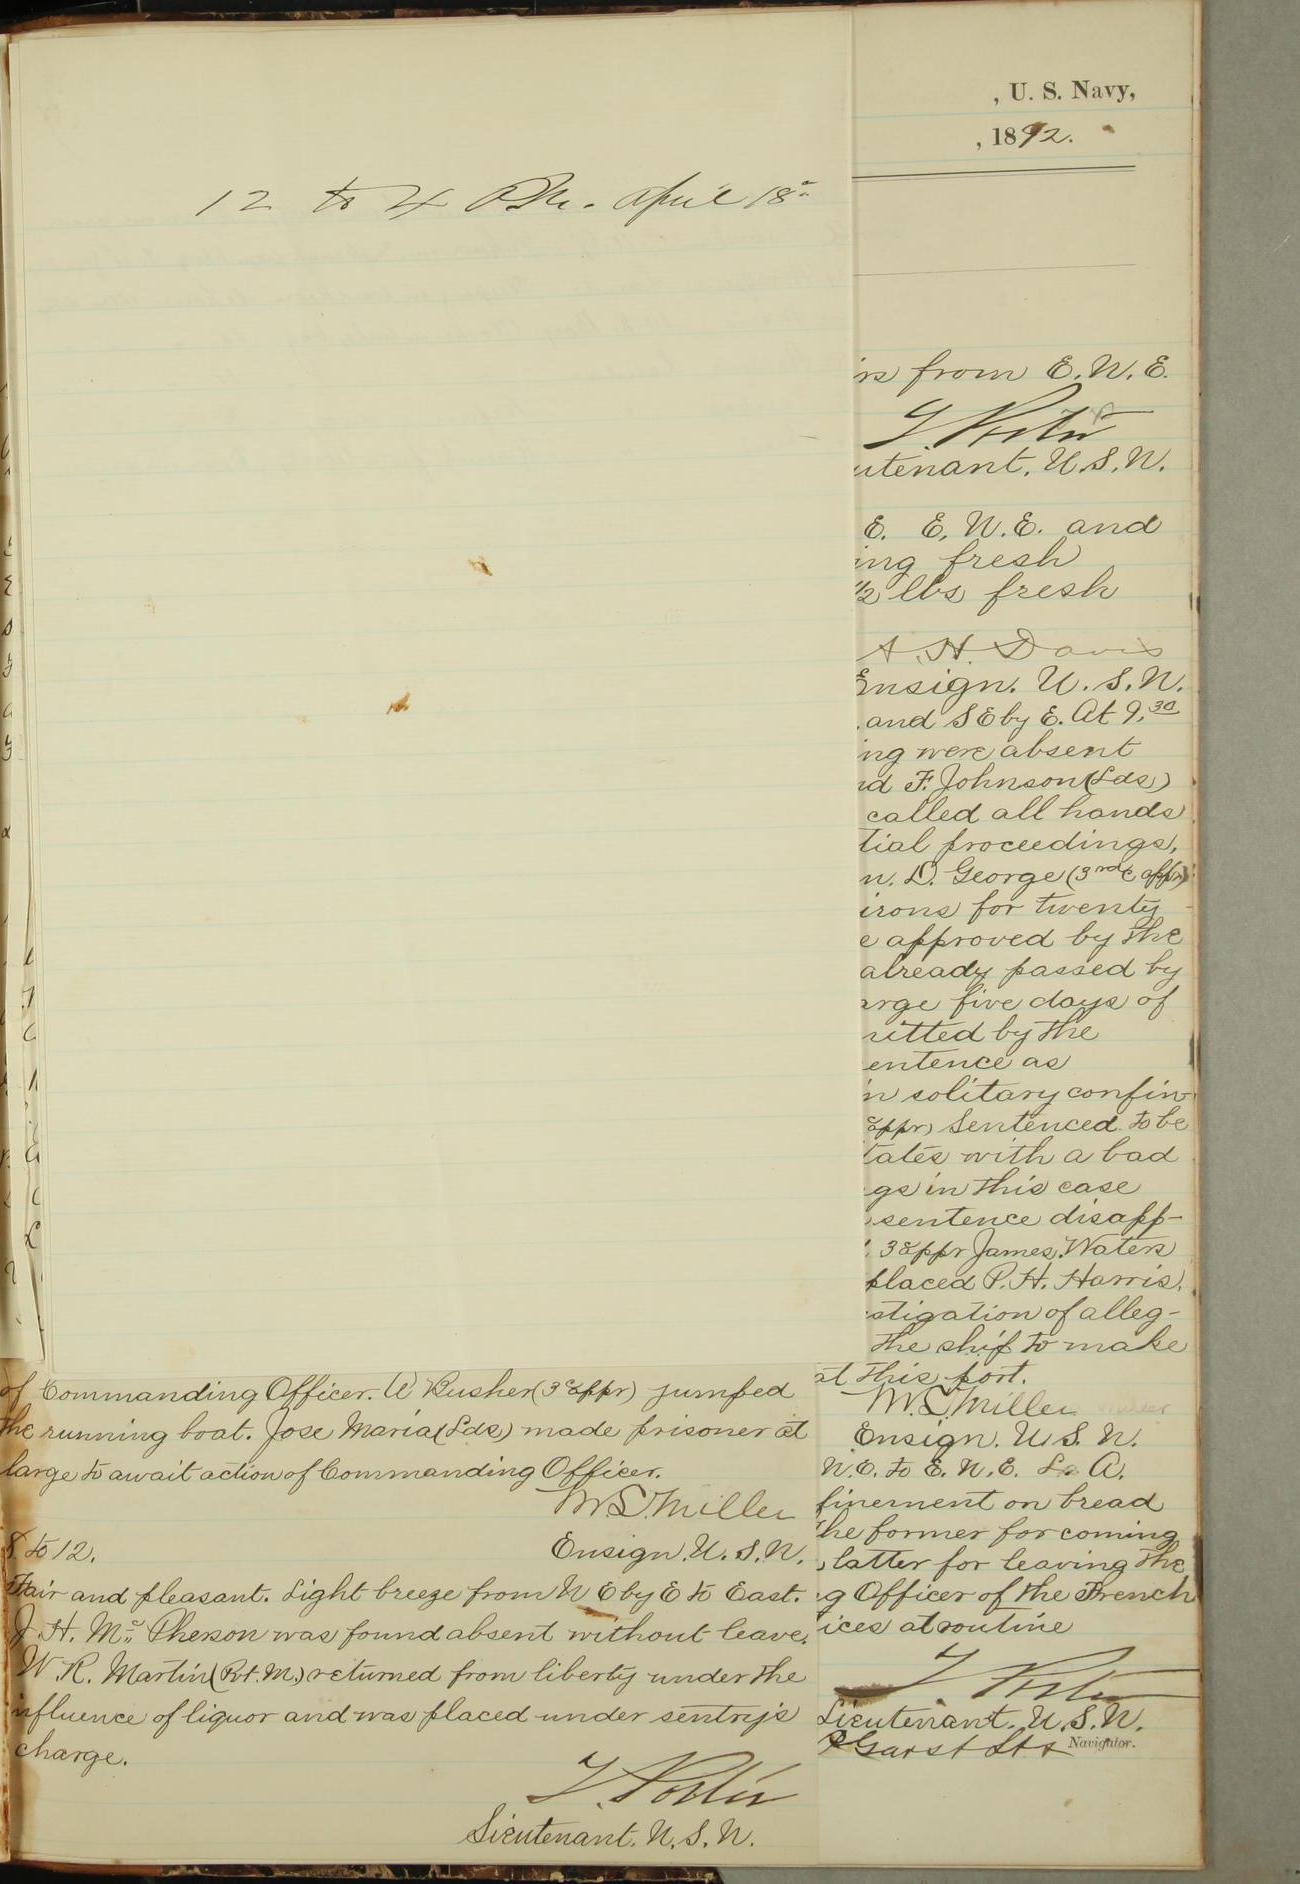 12 to 4 P.M. April 18"
of Commanding Officer. W Busher (3 c appr) jumped
the running boat. Jose Maria (Lds) made prisoner at
large to await action of Commanding Officer.
W S. Miller
Ensign. U. S. N.
8 to 12.
Fair and pleasant. Light breeze from N E by E to East.
J. H. Mc Pherson was found absent without leave.
W R. Martin (Pvt. M.) returned from liberty under the
influence of liquor and was placed under sentry's
charge.
Lieutenant. U. S. N.
, U. S. Navy,
, 1892.
rs from E. N. E.
utenant. U. S. N.
E. E. N. E. and
ing fresh
1/2 lbs fresh
A. H. Davis
Ensign. U. S. N.
and S E by E. At 9.30
ng were absent
nd F. Johnson (Lds)
called all hands
tial proceedings,
n. D. George (3rd c appr)
irons for twenty
e approved by the
already passed by
arge five days of
mitted by the
entence as
n solitary confin
appr) sentenced to be
tates with a bad
gs in this case
sentence disapp-
3 c appr James Waters
placed P. H. Harris.
stigation of alleg-
the ship to make
at this port.
W. S. Miller
Ensign. U. S. N.
N. E. to E. N. E. A.
finement on bread
the former for coming
latter for leaving the
g Officer of the French
ices at routine
Lieutenant. U. S. N.
Garst
Navigator.